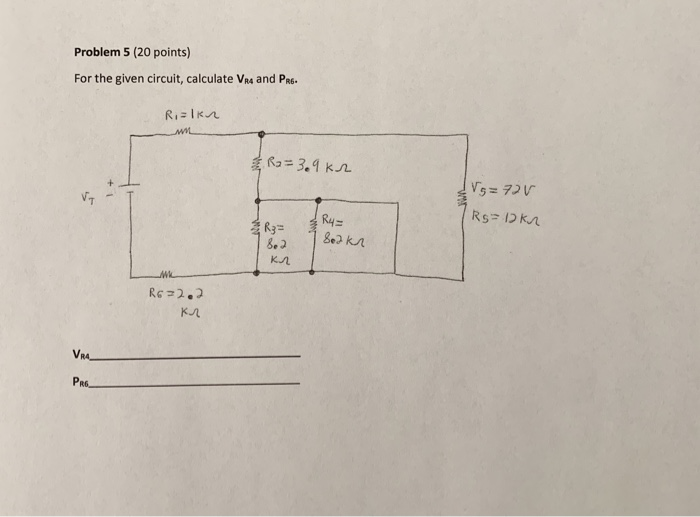 Problem 5 (20 points)
For the given circuit, calculate VR4 and PR6.
R1=1KΩ
R2=3.9 KΩ
+
VT -
V5=72V
R5=12KΩ
R3=
8.2
KΩ
R4=
8.2KΩ
R6=2.2
KΩ
VR4
PR6